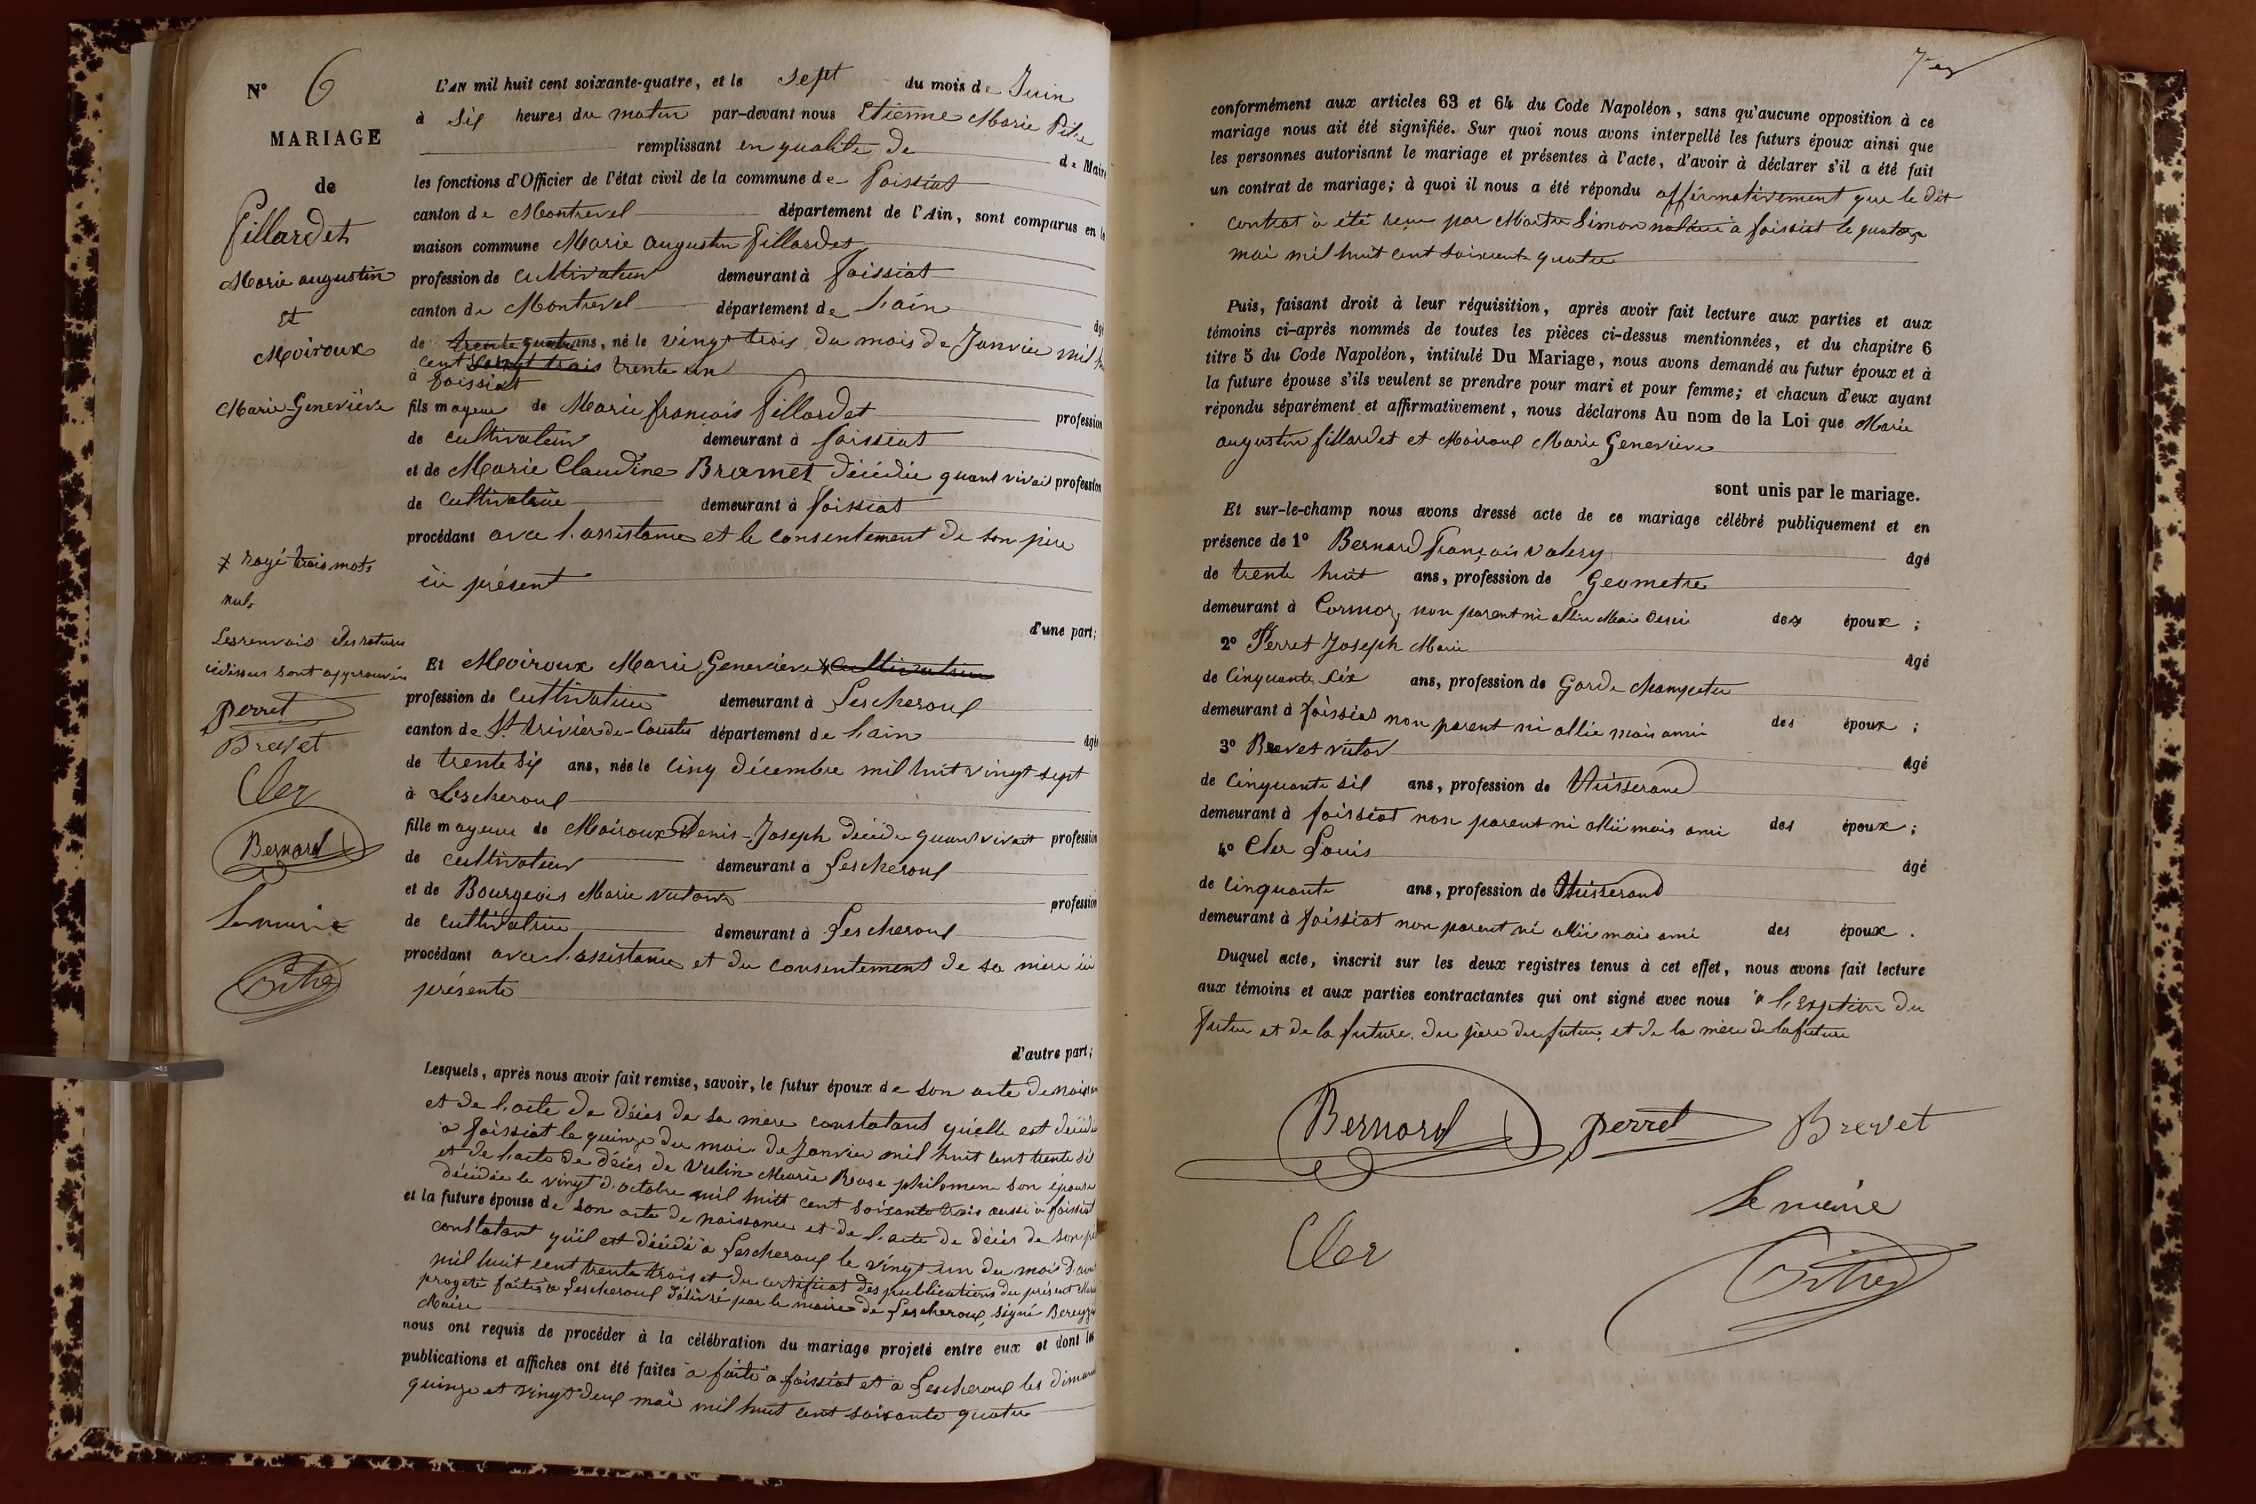 N° 6
MARIAGE
de
Pillardet
Marie augustin
et
Moiroux
Marie Geneviève
x rayé trois mots
nuls
Les renvois et ratures
cidessus sont approuvés
Perret
Brevet
Cler
Bernard
Le maire
L'AN mil huit cent soixante-quatre, et le sept du mois de Juin
à Six heures du matin par-devant nous Etienne Marie
remplissant en qualité de de Maire
les fonctions d'Officier de l'état civil de la commune de foissiat
canton de Montrevel département de l'Ain, sont comparus en la
maison commune Marie augustin Pillardet
profession de cultivateur demeurant à foissiat
canton de Montrevel département de l'ain âgé
de trente quatre ans, né le vingt trois du mois de Janvier mil
cent vingt trois trente un
à foissiat
fils majeur de Marie françois Pillardet profession
de cultivateur demeurant à foissiat
et de Marie Claudine Bramet décédée quant vivait profession
de cultivatrice demeurant à foissiat
procédant avec l'assistance et le consentement de son père
ici présent
d'une part;
Et Moiroux Marie Geneviève x cultivatrice
profession de cultivatrice demeurant à Lescheroux
canton de St trivier de Courtes département de l'ain âgée
de trente Six ans, née le Cinq décembre mil huit vingt sept
à Lescheroux
fille majeure de Moiroux Denis-Joseph décédé quant vivait profession
de cultivateur demeurant à Lescheroux
et de Bourgeois Marie Victoire profession
de cultivatrice demeurant à Lescheroux
procédant avec l'assistance et du consentement de sa mère ici
présente
d'autre part;
Lesquels, après nous avoir fait remise, savoir, le futur époux de son acte de
et de l'acte de décès de sa mère constatant qu'elle est décédée
a foissiat le quinze du mois de Janvier mil huit cent trente six
et de l'acte de décès de Vulin Marie Rose philomène son épouse
décédée le vingt d'octobre mil huit cent soixante trois aussi a foissiat
et la future épouse de son acte de naissance et de l'acte de décès de son
constatant qu'il est décédé a Lescheroux le vingt un du mois
mil huit cent trente trois et du certificat des publications du présent
projeté faites a Lescheroux délivré par le maire de Lescheroux, signé
Maire
nous ont requis de procéder à la célébration du mariage projeté entre eux et dont les
publications et affiches ont été faites a faite a foissiat et a Lescheroux les
quinze et vingt deux mai mil huit cent soixante quatre
conformément aux articles 63 et 64 du Code Napoléon, sans qu'aucune opposition à ce
mariage nous ait été signifiée. Sur quoi nous avons interpellé les futurs époux ainsi que
les personnes autorisant le mariage et présentes à l'acte, d'avoir à déclarer s'il a été fait
un contrat de mariage; à quoi il nous a été répondu affirmativement que le dit
contrat à été reçu par Maitre Simon notaire a foissiat le quatorze
mai mil huit cent soixante quatre
Puis, faisant droit à leur réquisition, après avoir fait lecture aux parties et aux
témoins ci-après nommés de toutes les pièces ci-dessus mentionnées, et du chapitre 6
titre 5 du Code Napoléon, intitulé Du Mariage, nous avons demandé au futur époux et à
la future épouse s'ils veulent se prendre pour mari et pour femme; et chacun d'eux ayant
répondu séparément et affirmativement, nous déclarons Au nom de la Loi que Marie
augustin fillardet et Moiroux Marie Geneviève
sont unis par le mariage.
Et sur-le-champ nous avons dressé acte de ce mariage célébré publiquement et en
présence de 1° Bernard François Valery âgé
de trente huit ans, profession de Geometre
demeurant à Cormoz non parent ni allié Mais des époux;
2° Perret Joseph Marie âgé
de Cinquante Six ans, profession de Garde champetre
demeurant à foissiat non parent ni allié mais ami des époux;
3° Brevet victor âgé
de Cinquante six ans, profession de Tisserand
demeurant à foissiat non parent ni allié mais ami des époux;
4° Cler Louis âgé
de Cinquante ans, profession de Tisserand
demeurant à foissiat non parent ni allié mais ami des époux.
Duquel acte, inscrit sur les deux registres tenus à cet effet, nous avons fait lecture
aux témoins et aux parties contractantes qui ont signé avec nous à l'exeption du
futur et de la future, du père du futur, et de la mère de la future
Bernard Perret Brevet
Le maire
Cler